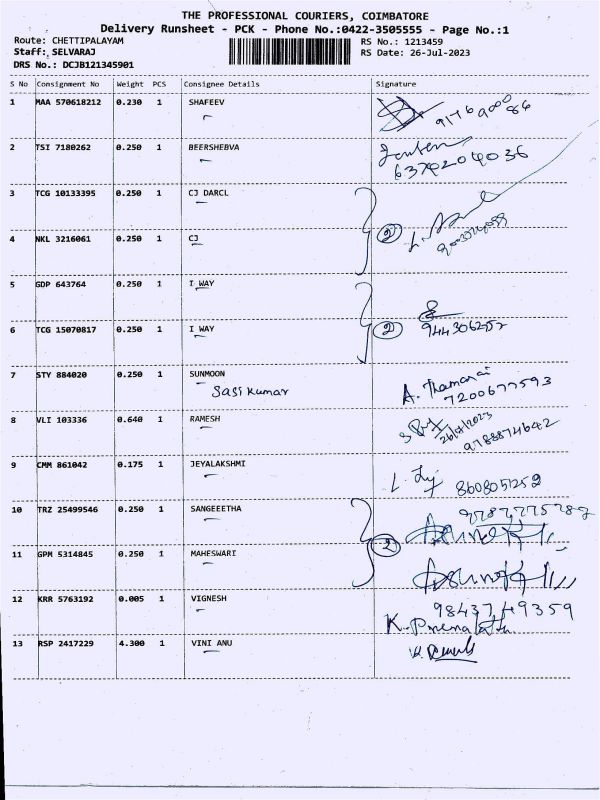 THE PROFESSIONAL COURIERS, COIMBATORE
Delivery Runsheet - PCK - Phone No.:0422-3505555 - Page No.:1
Route: CHETTIPALAYAM RS No.: 1213459
Staff: SELVARAJ RS Date: 26-Jul-2023
DRS No.: DCJB121345901
S No Consignment No Weight PCS Consignee Details Signature
1 MAA 570618212 0.230 1 SHAFEEV
2 TSI 7180262 0.250 1 BEERSHEBVA
3 TCG 10133395 0.250 1 CJ DARCL
4 NKL 3216061 0.250 1 CJ 2
5 GDP 643764 0.250 1 I WAY
6 TCG 15070817 0.250 1 I WAY 2
7 STY 884020 0.250 1 SUNMOON
Sasi Kumar A. Thamarai
7200677593
8 VLI 103336 0.640 1 RAMESH
26/7/2023
9788874642
9 CMM 861042 0.175 1 JEYALAKSHMI
8608051252
10 TRZ 25499546 0.250 1 SANGEEETHA
2
11 GPM 5314845 0.250 1 MAHESWARI
12 KRR 5763192 0.005 1 VIGNESH
9843749359
K. Premalatha
13 RSP 2417229 4.300 1 VINI ANU